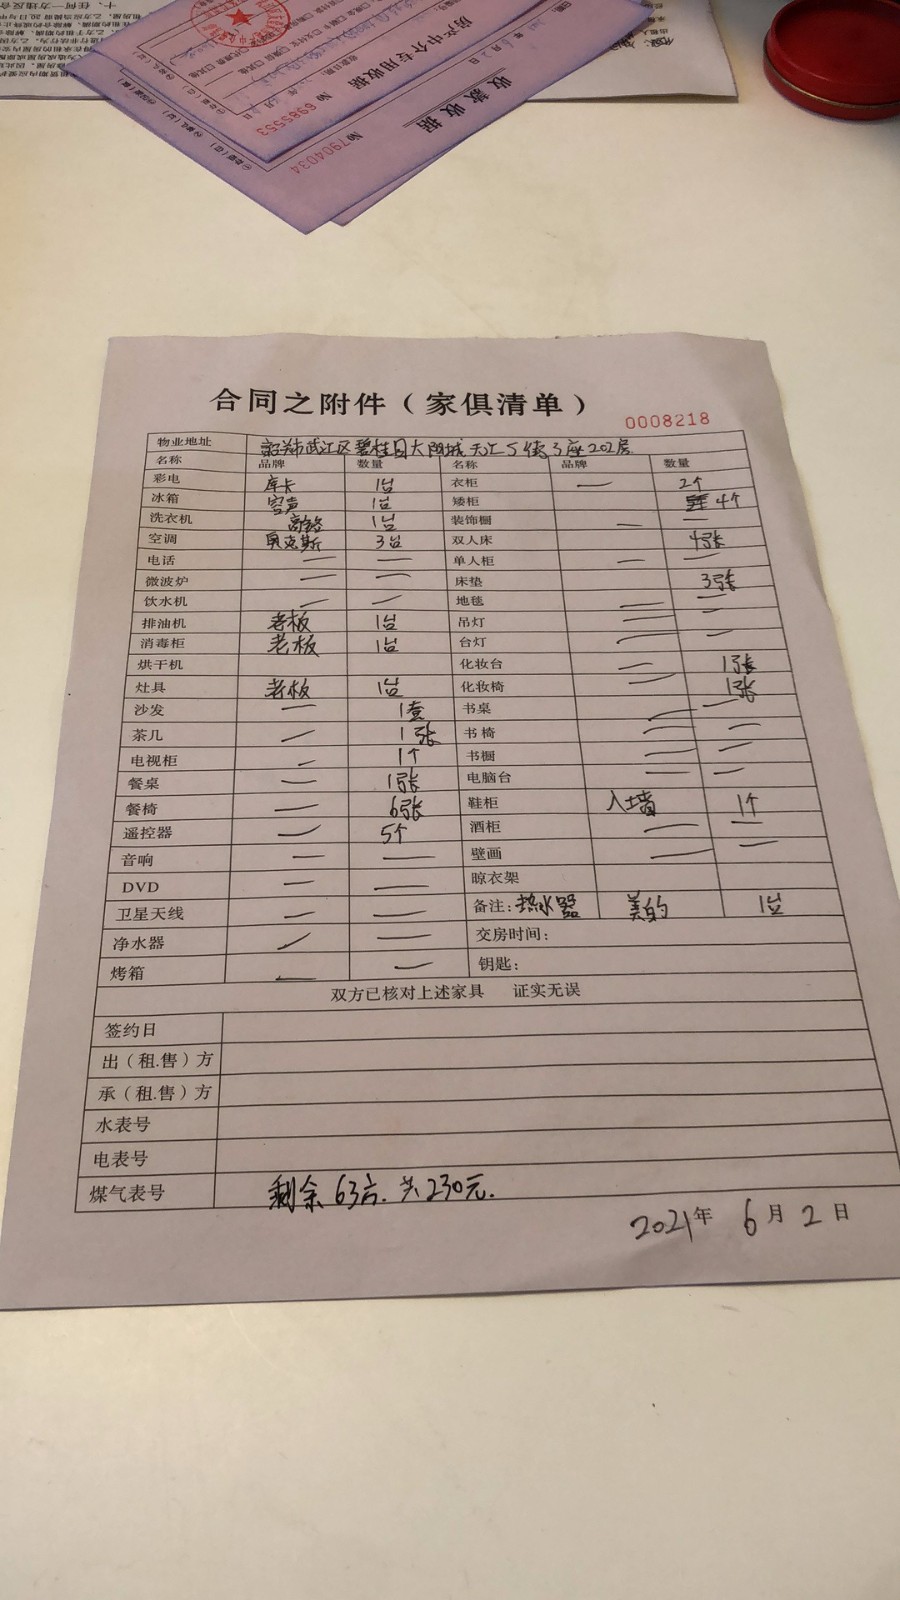 收款收据
№7904034
房产中介专用收据
№ 6985553
合同之附件（家俱清单）
0008218
物业地址 韶关市武江区碧桂园太阳城天汇5街3座202房
名称 品牌 数量 名称 品牌 数量
彩电 库卡 1台 衣柜 — 2个
冰箱 容声 1台 矮柜 4个
洗衣机 1台 装饰橱 — —
空调 奥克斯 3台 双人床 4张
电话 — — 单人柜 — —
微波炉 — — 床垫 3张
饮水机 — — 地毯 — —
排油机 老板 1台 吊灯 — —
消毒柜 老板 1台 台灯 — —
烘干机 化妆台 — 1张
灶具 老板 1台 化妆椅 — 1张
沙发 — 1套 书桌 — —
茶几 — 1张 书椅 — —
电视柜 — 1个 书橱 — —
餐桌 — 1张 电脑台 — —
餐椅 — 6张 鞋柜 入墙 1个
遥控器 — 5个 酒柜 — —
音响 — — 壁画 — —
DVD — — 晾衣架
卫星天线 — — 备注：热水器 美的 1台
净水器 — — 交房时间：
烤箱 — — 钥匙：
双方已核对上述家具 证实无误
签约日
出（租.售）方
承（租.售）方
水表号
电表号
煤气表号 剩余63方.共230元.
2021年 6月2日